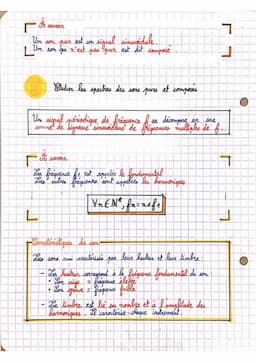 À savoir
Un son pur est un signal sinusoïdale.
Un son qui n'est pas pur est dit composé
Etudier les spectres des sons purs et composés
Un signal périodique de fréquence f se décompose en une
somme de signaux sinusoïdaux de fréquences multiples de f.
À savoir
La fréquence f₁ est appelée le fondamental
Les autres fréquences sont appelées les harmoniques
∀n∈N*, fn = n×f₁
Caractéristiques du son
Les sons sont caractérisés par leur hauteur et leur timbre
- La hauteur correspond à la fréquence fondamental du son
• Son aigu = fréquence élevée
• Son grave = fréquence faible
- Le timbre est lié au nombre et à l'amplitude des
harmoniques. Il caractérise chaque instrument.